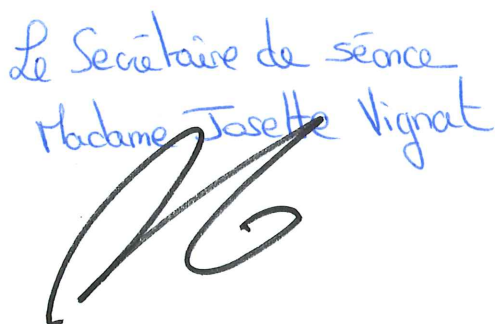 Le Secrétaire de séance
Madame Josette Vignat